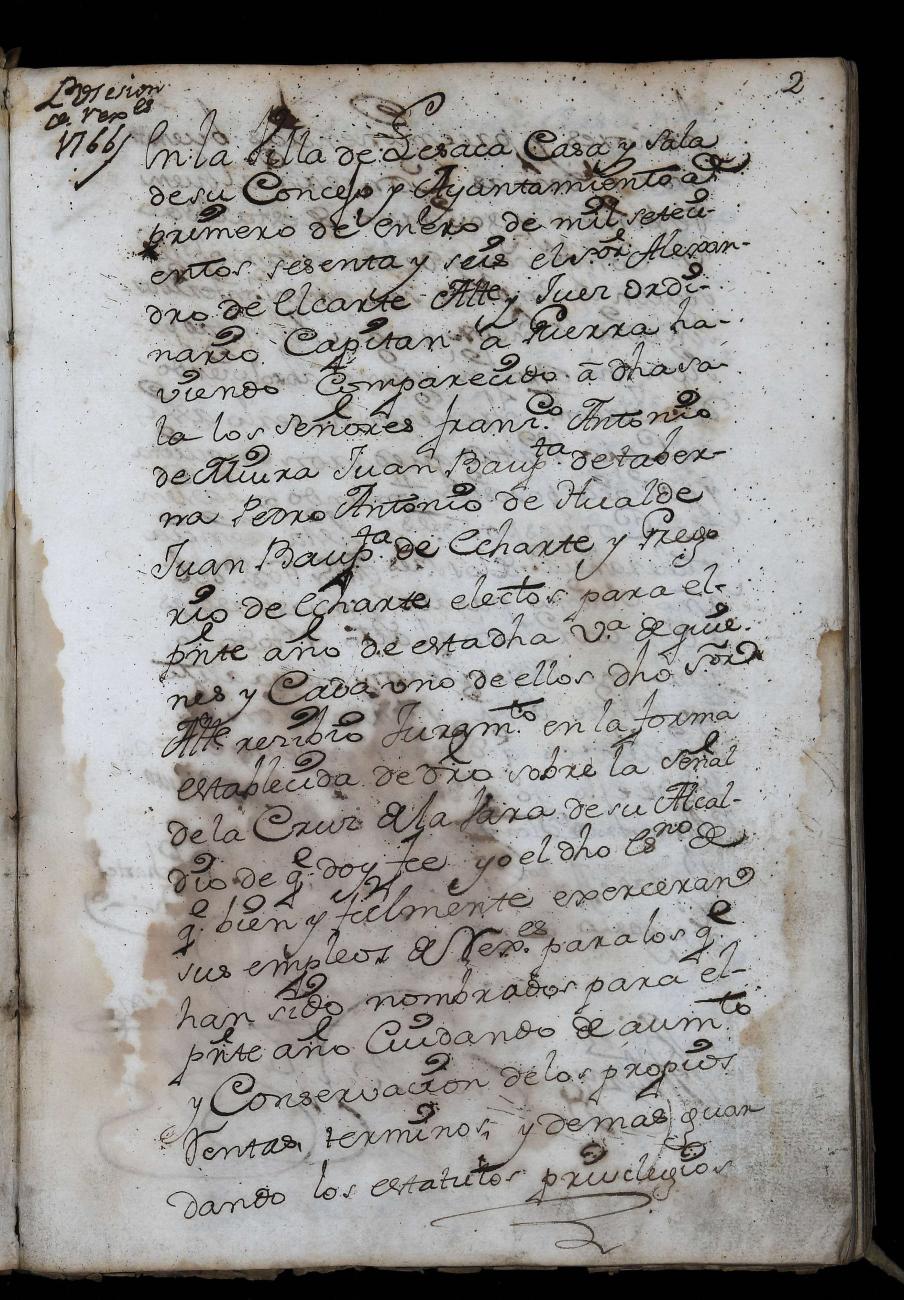 2
Posesion
de Rex.es
1766
En la Villa de Lesaca Casa y Sala
de su Concejo y Ayuntamiento a
primero de Enero de mil seteci-
entos sesenta y seis el s.or Alexan-
dro de Elcarte Alte y Juez ordi-
nario Capitan a Guerra ha-
viendo Comparecido a dha sa
la los señores fran.co Antonio
de Miura Juan Baup.ta de taber-
na Pedro Antonio de Hualde
Juan Baup.ta de Echarte y Grego
rio de Echarte electos para el
pnte año de esta dha v.a de quie-
nes y Cada uno de ellos dho s.or
Alte resibio Juram.to en la forma
establecida de dro sobre la señal
de la Cruz de la Vara de su Alcal-
dio de q.e doy fee yo el dho Es.no de
q.e bien y fielmente exerceran
sus empleos de Rex.es para los q.e
han sido nombrados para el
pnte año Cuidando de aum.to
y Conservacion de los propios
Rentas, terminos, y demas guar
dando los estatutos privilegios